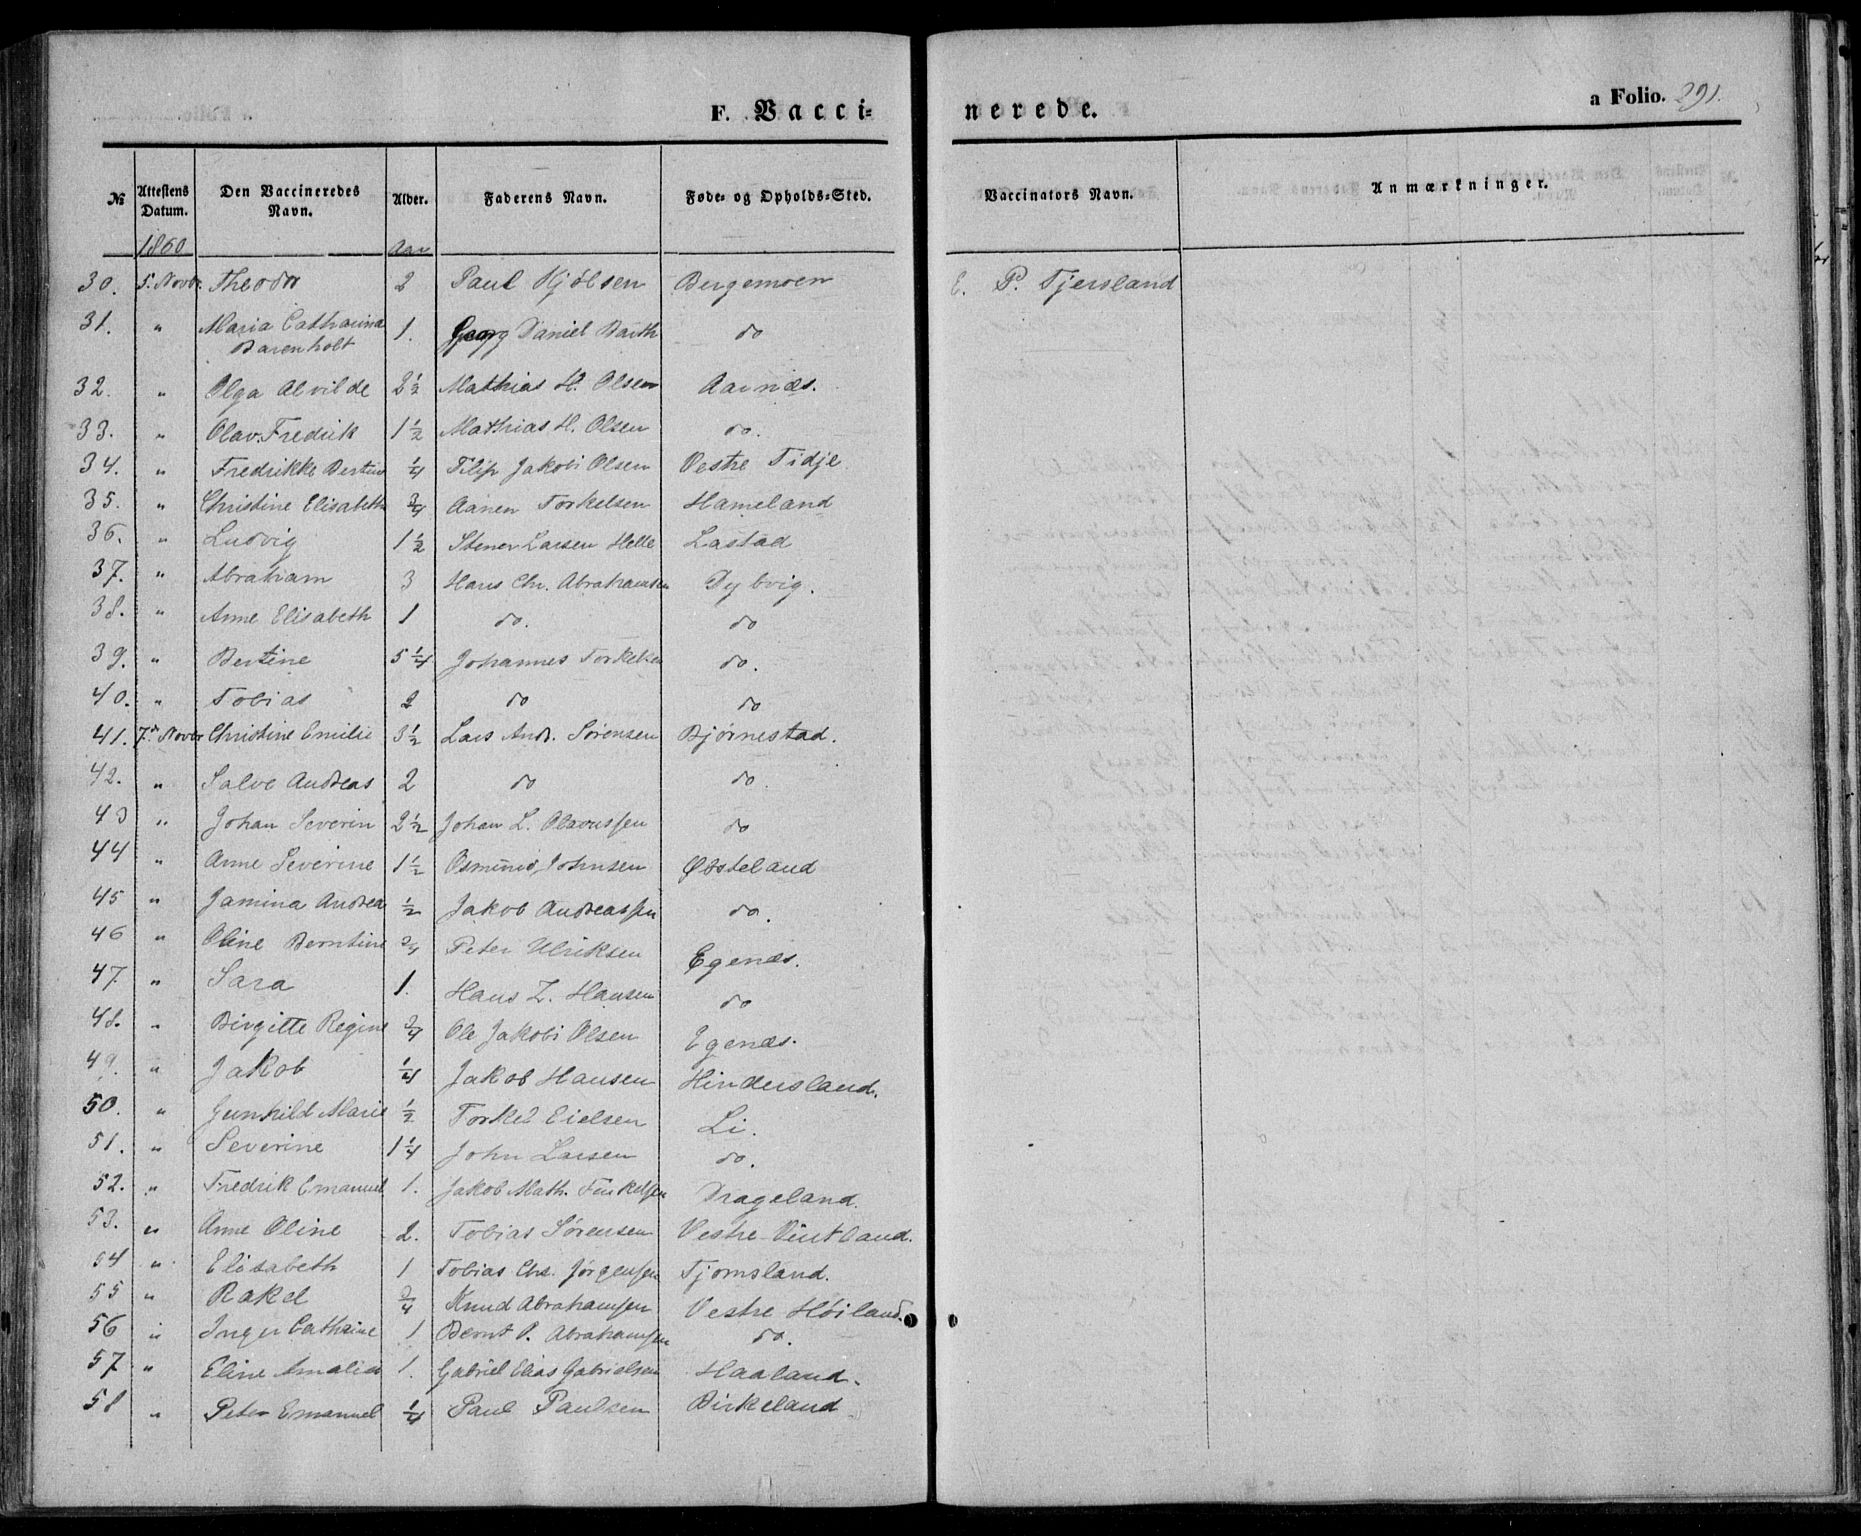 F. Vacci= nerede.
a Folio. 291.
№ Attestens Datum. Den Vaccineredes Navn. Alder. Faderens Navn. Føde- og Opholds-Sted. Vaccinators Navn. Anmærkninger.
1860 Aar
30. 5. Novbr. Theodor 2 Paul Kjølsen Bergemoen E. P. Tjersland
31. " Maria Catharina 1. Georg Daniel Barth do
Barenholt
32. " Olga Alvilde 2 1/2 Mathias H. Olsen Aarnæs.
33. " Olav Fredrik 1 1/2 Mathias H. Olsen do.
34. " Fredrikke Bertine 1/4 Filip Jakobi Olsen Vestre Tidje
35. " Christine Elisabeth 3/4 Aanen Torkelsen Hameland
36. " Ludvig 1 1/2 Stener Larsen Helle Lastad
37. " Abraham 3 Hans Chr. Abrahamsen Dybvig.
38. " Anne Elisabeth 1 do. do
39. " Bertine 5 1/4 Johannes Torkelsen do.
40. " Tobias 2 do do
41. 7de Novbr Christine Emilie 3 1/2 Lars Andr. Sørensen Bjørnestad.
42. " Salve Andreas 2 do do.
43 " Johan Severin 2 1/2 Johan L. Olavussen do
44 " Anne Severine 1 1/2 Osmund Johnsen Øbsteland
45 " Jamina Andrea 1/2 Jakob Andreassen do.
46 " Oline Berntine 3/4 Peter Ulriksen Egenæs.
47. " Sara 1. Hans Z. Hansen do
48. " Birgitte Regine 3/4 Ole Jakobi Olsen Egenæs.
49. " Jakob 1/4 Jakob Hansen Hindersland.
50. " Gunhild Marie 1/2 Torkel Eielsen Li.
51. " Severine 1 1/4 John Larsen do.
52. " Fredrik Emanuel 1. Jakob Math. Drageland.
53. " Anne Oline 2. Tobias Sørensen Vestre Vintland.
54 " Elisabeth 1 Tobias Chr. Jørgensen Tjomsland.
55 " Rakel 3/4 Knud Abrahamsen Vestre Høiland.
56 " Inger Cathrine 1 Bernt P. Abrahamsen do.
57. " Eline Amalia 1. Gabriel Elias Gabrielsen Haaland.
58 " Peter Emanuel 1/4 Paul Paulsen Birkeland